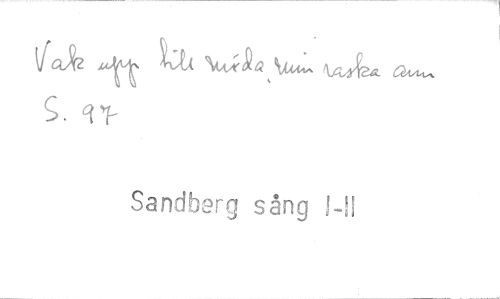 Vak upp till möda, min raska arm
S. 97
Sandberg sång I-II